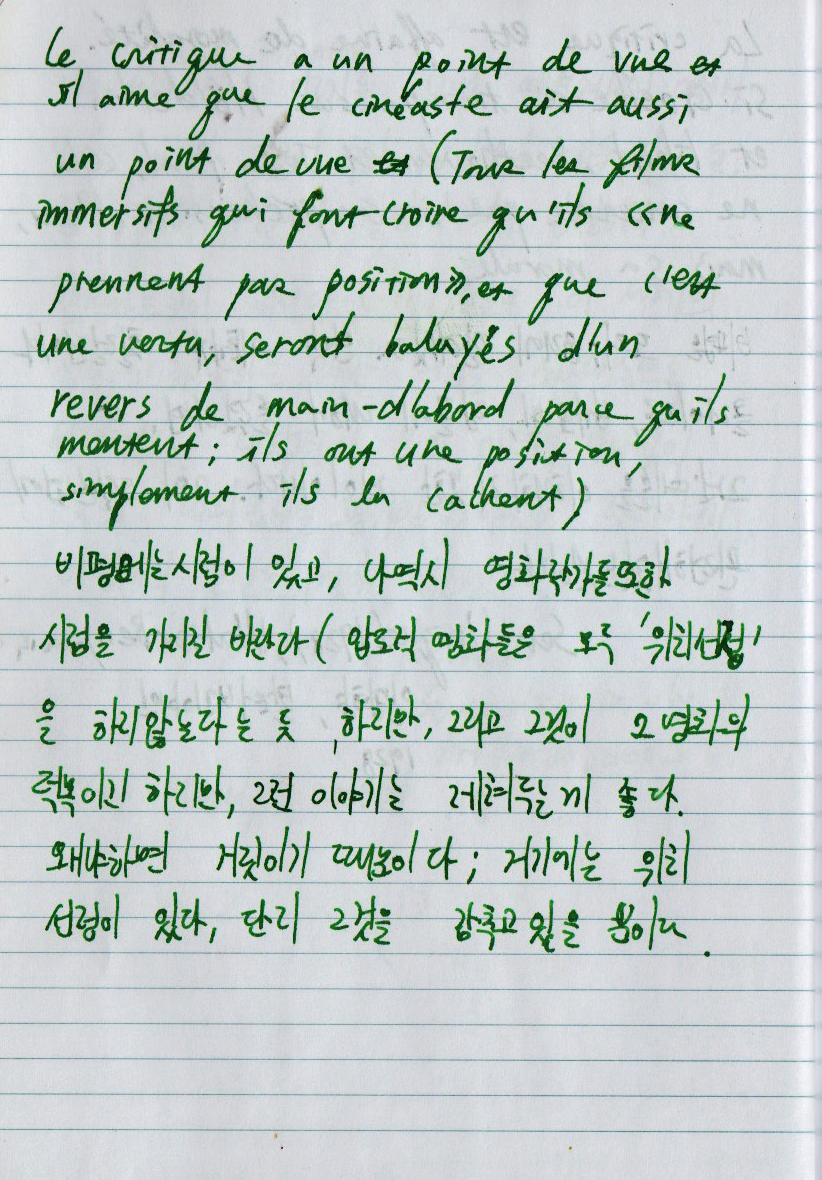 le critique a un point de vue et
il aime que le cinéaste ait aussi
un point de vue (Tous les films
immersifs qui font croire qu'ils «ne
prennent pas position», et que c'est
une vertu, seront balayés d'un
revers de main - d'abord parce qu'ils
mentent; ils ont une position,
simplement ils la cachent)
비평에는 시점이 있고, 나 역시 영화작가들 또한
시점을 가지길 바란다 (압도적 영화들은 모두 '위치선정'
을 하지 않는다는 듯 하지만, 그리고 그것이 그 영화의
덕목이긴 하지만, 그런 이야기는 제쳐두는게 좋다.
왜냐하면 거짓이기 때문이다; 거기에는 위치
선정이 있다, 단지 그것을 감추고 있을 뿐이다.